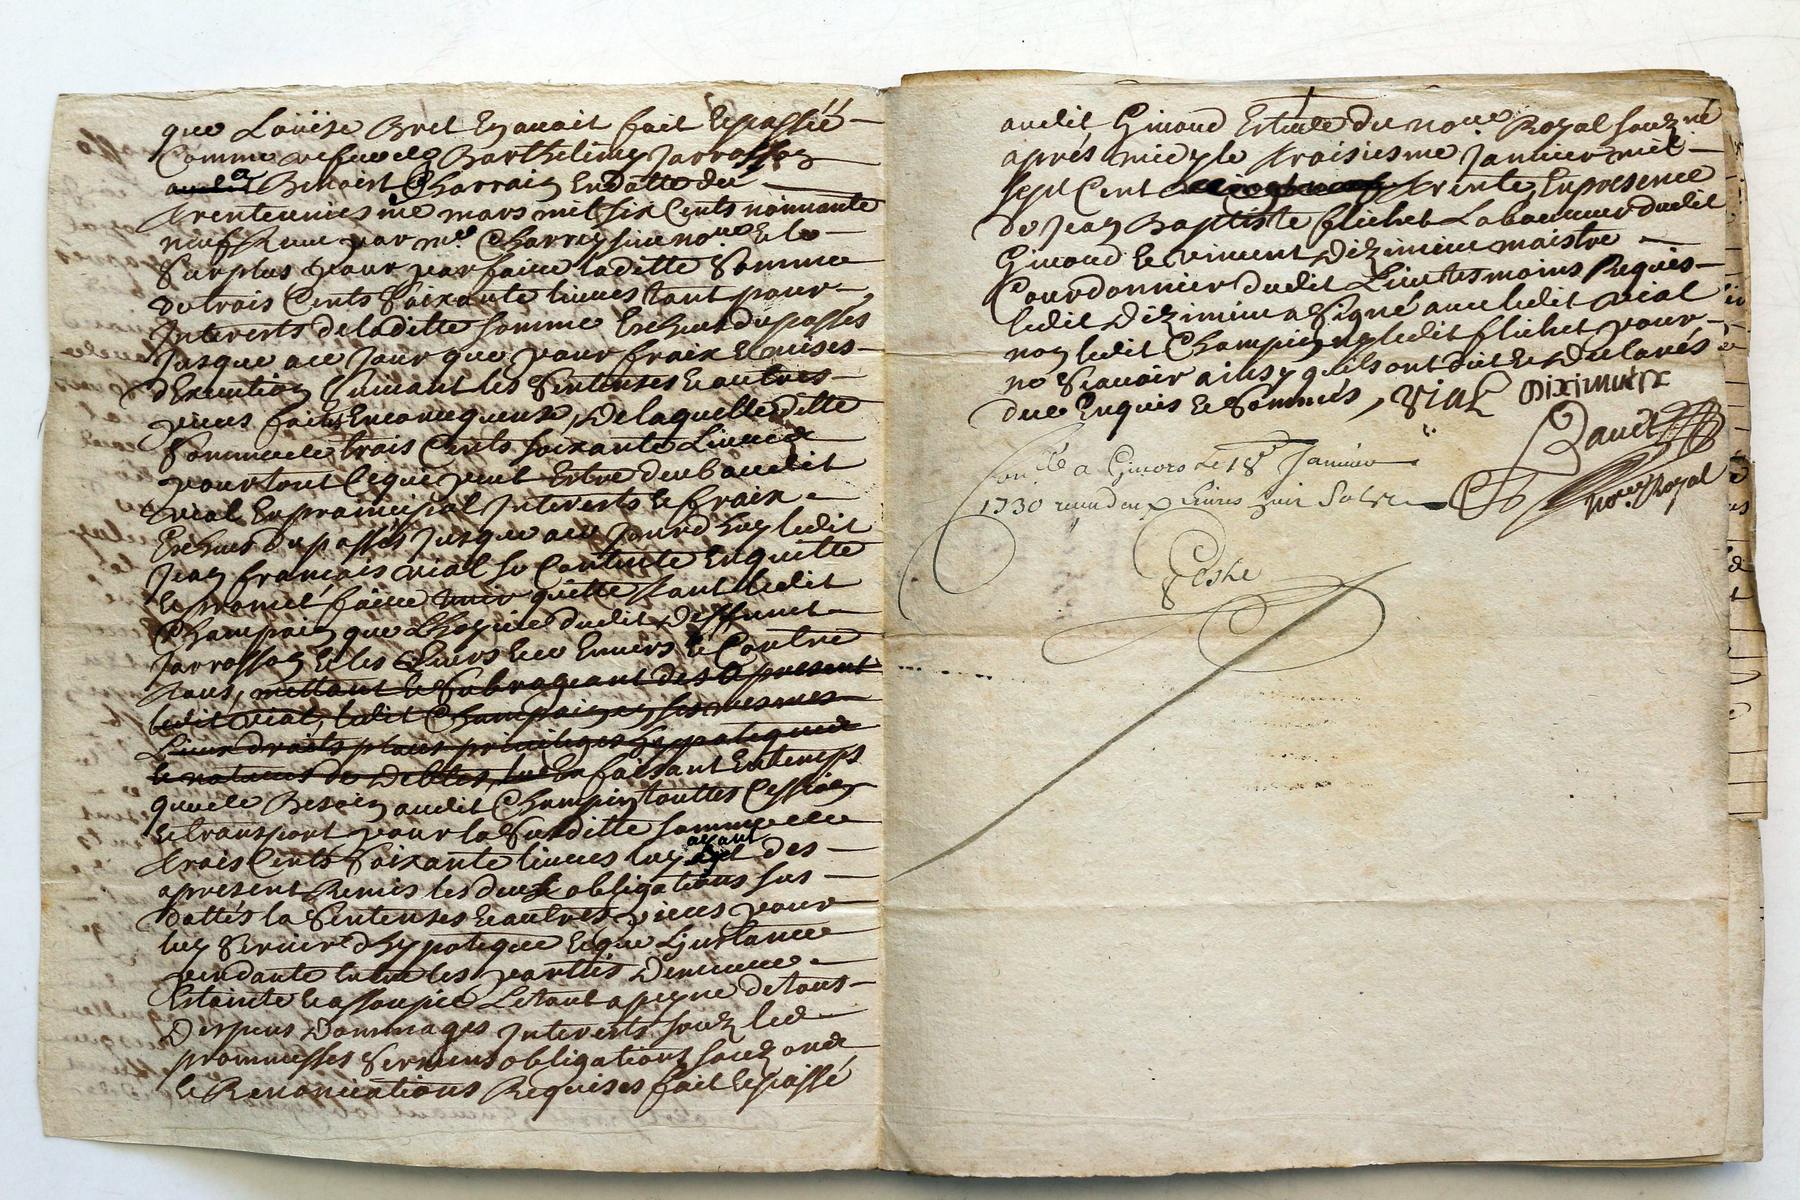 que Louïse Bret En avait fait Et passé
Comme vefue de Barthelimy Jarrosson
Benoist Charrain En datte du
trenteuniesme mars mil six Cents nonnante
neuf Reçeue par me. Charrey sine nore. Et le
Surplus pour parfaire laditte Somme
de trois Cents Soixante liures tant pour
Interests de laditte somme Escheus du passés
Jusque a ce Jour que pour fraix Et mises
d'Execution Suivant les Sentenses Et autres
pieces faites En consequense, de laquelle ditte
Somme de trois Cents Soixante Liures
pour tout Ce qui peut Estre deub audit
vial En principial Interests Et fraix
Escheus du passés Jusque a ce Jourdhuy ledit
Jean françois vial se Contente En quitte
Et promet faire tenir quitte tant ledit
Champain que L'hoyrie dudit Deffunct
Jarrosson Et les Siens Envers Et Contre
tous, mettant Et Subrogeant des a present
ledit vial, ledit Champain En ses mesmes
Lieux droits places privileges hyppoteques
Et natures de Debtes, En faisant En temps
que de Besoin audit Champin touttes Cession
Et transport pour la Susditte somme de
trois Cents Soixante liures luy ayant des
apresent Remis les deux obligations sus
dattés la Sentenses Et autres pieces pour
luy Servir d'hypoteque Et que L'Instance
pendante Entre les parties Demeure
Estainte Et assoupie Le tout a peyne de tous
Despens Dommages Interests souz les
prommesses Sermens obligations souz
Et Renonciations Requises fait Et passé
audit Giuord Estude du nore Royal souzné
aprés midy le troisiesme Janvier mil
sept Cent trente, En presence
de Jean Baptiste flichet Laboureur dudit
Giuord Et vincent Diximieu maistre
Courdonnier dudit Lieu tesmoins Requis
ledit Diximieu a Signé avec ledit vial
non ledit Champin ny ledit flichet pour
ne Scauoir ainsy qu'ils ont dit Et Declarés
de ce Enquis Et Sommés, vial Diximieux
Baudt
Conllé a Giuors Le 18e Janvier
nore. Royal
1730 receu deux Liures huit Sols